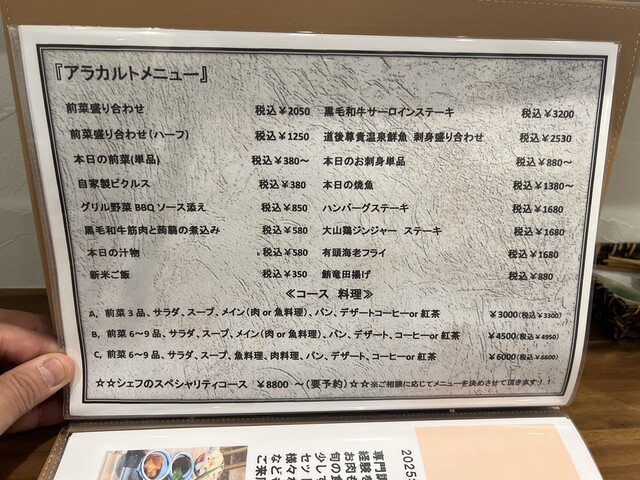 『アラカルトメニュー』
前菜盛り合わせ 税込￥2050
前菜盛り合わせ(ハーフ) 税込￥1250
本日の前菜(単品) 税込￥380～
自家製ピクルス 税込￥380
グリル野菜BBQソース添え 税込￥850
黒毛和牛筋肉と蒟蒻の煮込み 税込￥580
本日の汁物 税込￥580
新米ご飯 税込￥350
黒毛和牛サーロインステーキ 税込￥3200
道後尊貴温泉鮮魚 刺身盛り合わせ 税込￥2530
本日のお刺身単品 税込￥880～
本日の焼魚 税込￥1380～
ハンバーグステーキ 税込￥1680
大山鶏ジンジャー ステーキ 税込￥1680
有頭海老フライ 税込￥1680
鮪竜田揚げ 税込￥880
≪コース 料理≫
A、前菜3品、サラダ、スープ、メイン(肉or魚料理)、パン、デザートコーヒーor紅茶 ￥3000(税込￥3300)
B、前菜6～9品、サラダ、スープ、メイン(肉or魚料理)、パン、デザート、コーヒーor紅茶 ￥4500(税込￥4950)
C、前菜6～9品、サラダ、スープ、魚料理、肉料理、パン、デザート、コーヒーor紅茶 ￥6000(税込￥6600)
☆☆シェフのスペシャリティコース ￥8800 ～(要予約)☆☆※ご相談に応じてメニューを決めさせて頂きます！！
2025
専門
経験を
お肉も
旬の食
少しす
セット
様々な
など
ご来